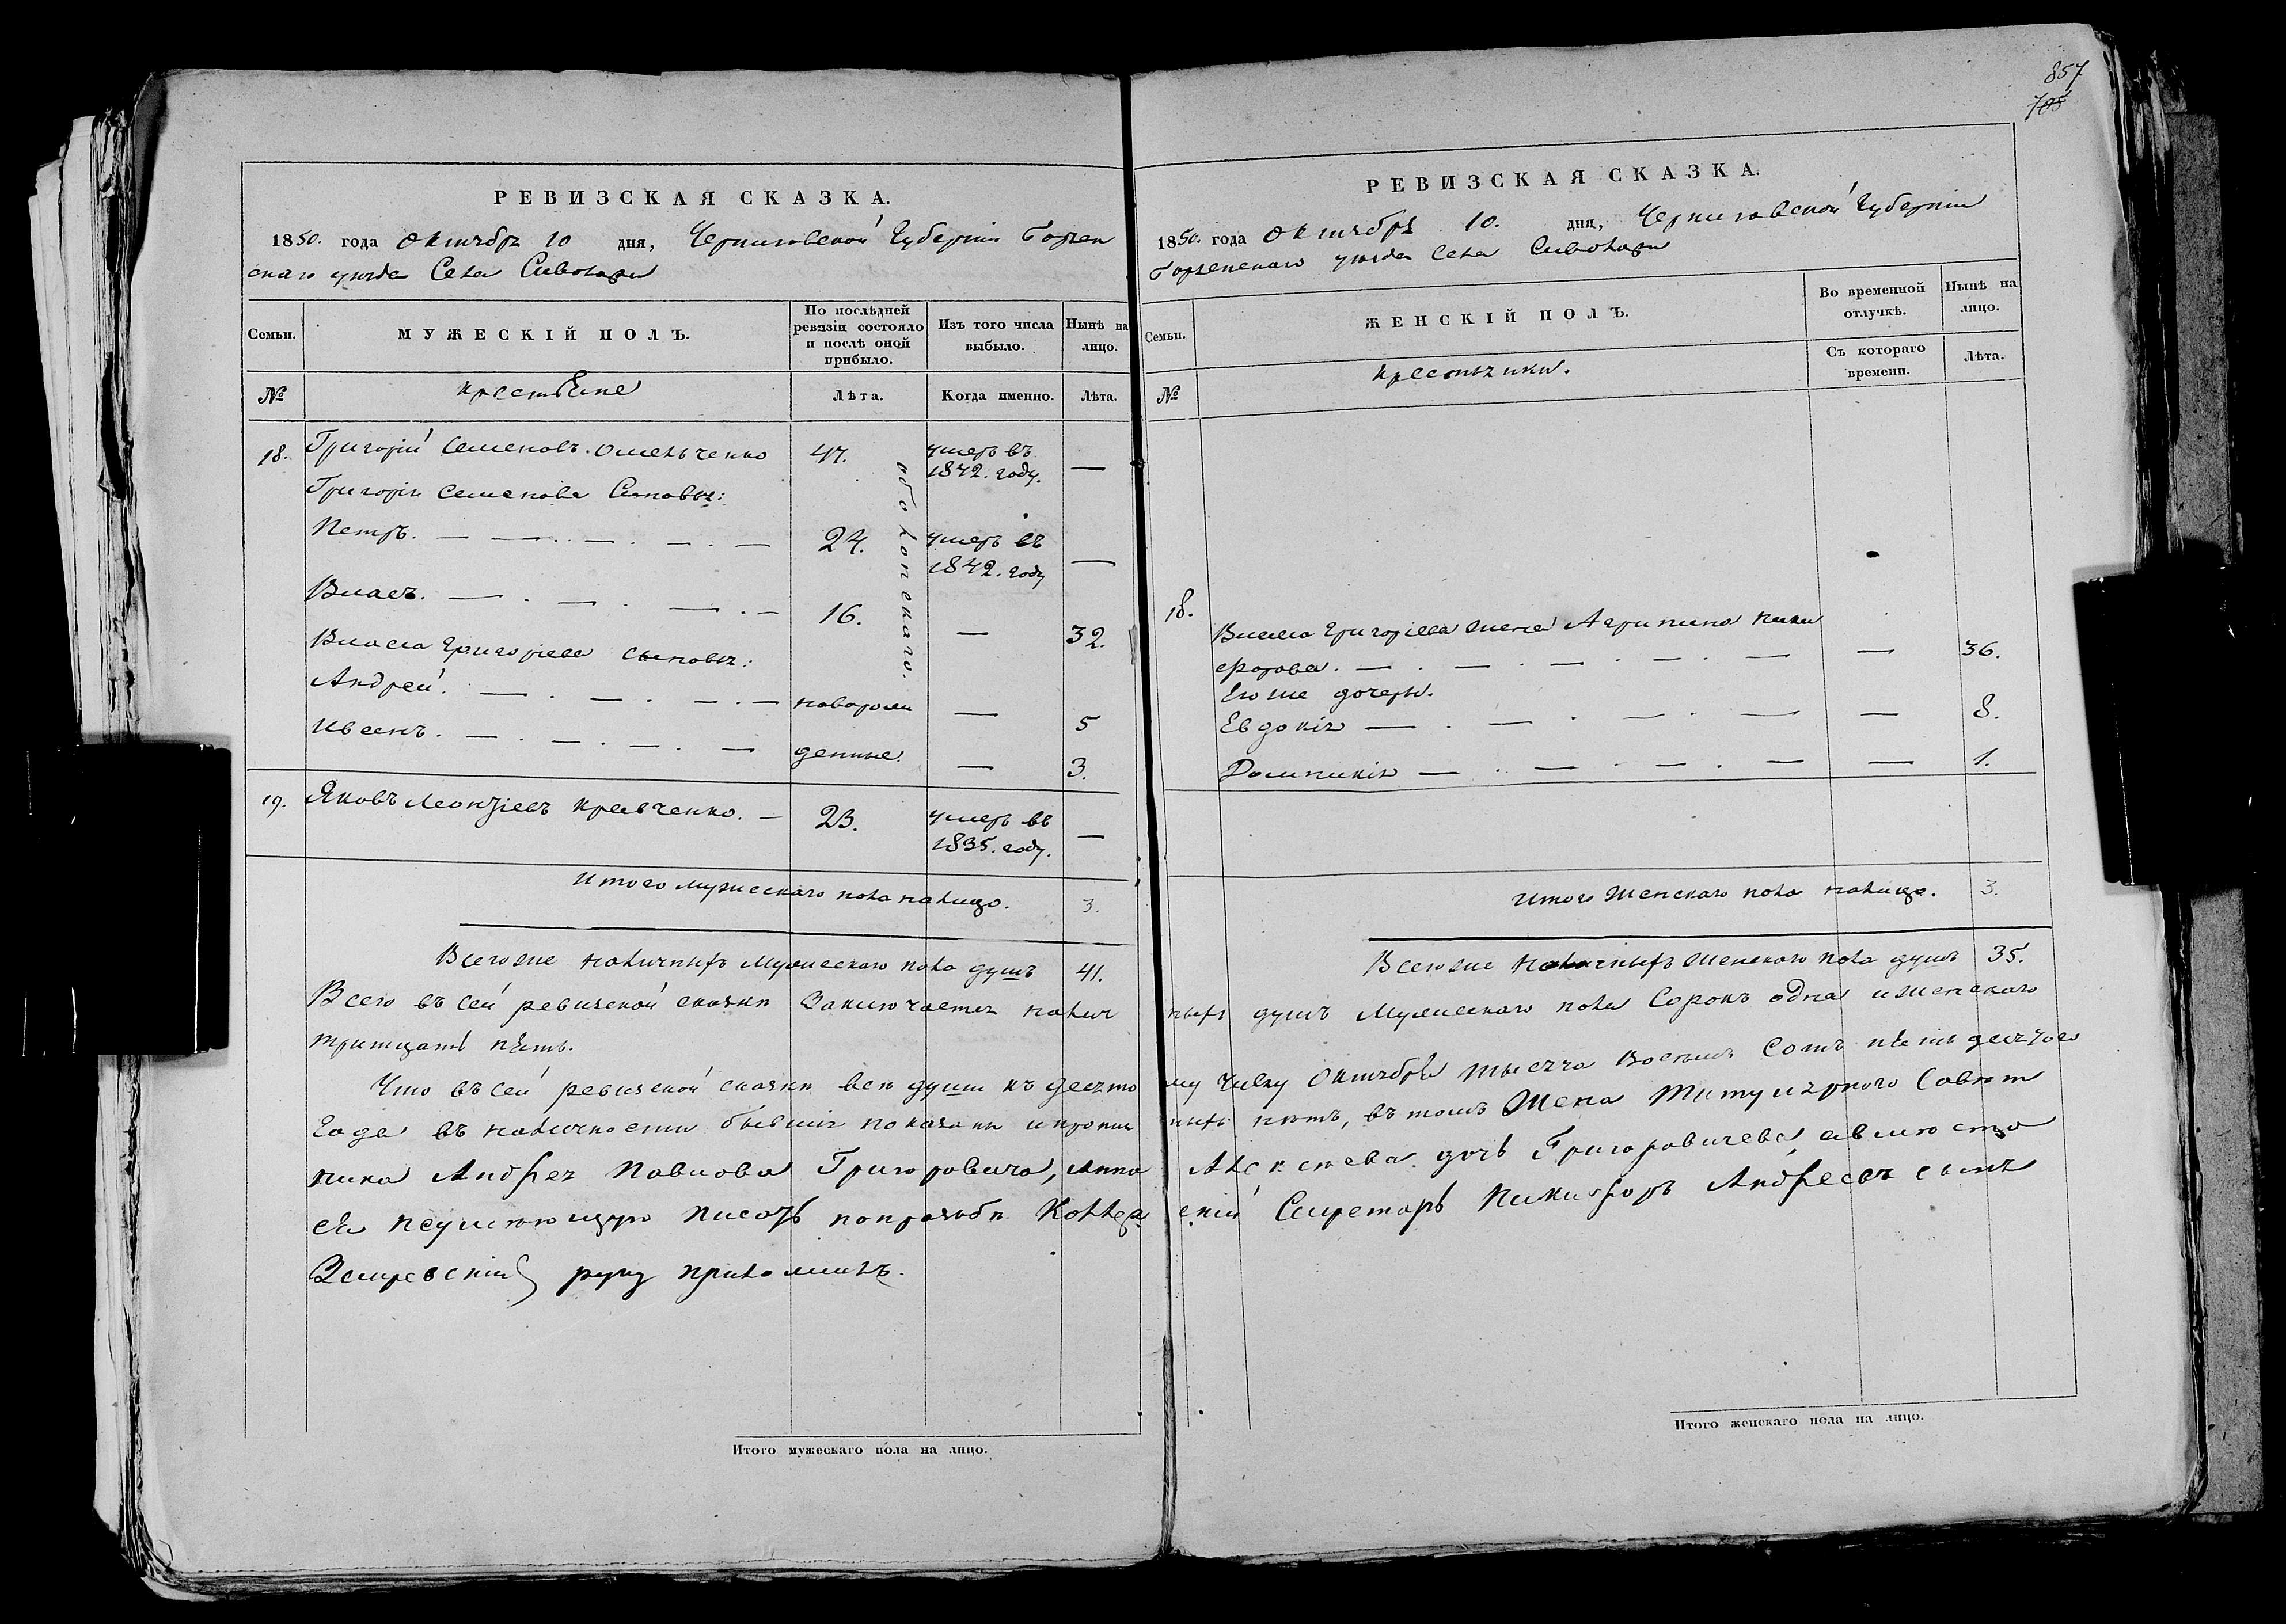 857
705
РЕВИЗСКАЯ СКАЗКА.
1850. года Октября 10 дня, Черниговской Губерніи Борзен
скаго уезда Села Сиволожи
Семьи.
МУЖЕСКІЙ ПОЛЪ.
По послѣдней ревизіи состояло и послѣ оной прибыло.
Изъ того числа выбыло.
Нынѣ на лицо.
№ крестьяне Лѣта. Когда именно. Лѣта.
18. Григорій Семеновъ Омельченко 47. умеръ въ 1842. году. —
Григорія Семенова Сыновья:
Петръ. — — — — — 24. умеръ въ 1842. году —
Власъ. — — — — 16. — 32.
Власа Григорьева сыновья:
Андрей. — — — — новорож — 5
Иванъ. — — — — денные. — 3.
обоконскаго.
19. Яковъ Леонтіевъ Кравченко. — 23. умеръ въ 1835. году. —
Итого мужескаго пола налицо. 3.
Всего же наличныхъ мужескаго пола душъ 41.
РЕВИЗСКАЯ СКАЗКА.
1850. года Октября 10. дня, Черниговской Губерніи
Борзенскаго уезда Села Сиволожи
Семьи.
ЖЕНСКІЙ ПОЛЪ.
Во временной отлучкѣ.
Нынѣ на лицо.
№ крестьянки. Съ котораго времени. Лѣта.
18. Власа Григорьева жена Агрипина Ники
форова. — — — — — — 36.
Его же дочери.
Евдокія — — — — — 8.
Домникія — — — — — 1.
Итого женскаго пола налицо. 3.
Всего же наличныхъ женскаго пола душъ 35.
Всего въ сей ревизской сказки заключается налич ныхъ душъ мужескаго пола сорокъ одна и женскаго
тритцать пять.
Что въ сей ревизской сказки все души къ десято му числу Октября тысяча восемь сотъ пятьдесятого
года въ наличности бывшія показаны и прописн ныхъ нѣтъ, въ томъ Жена Титулярного Совѣт
ника Андрея Павлова Григоровича, Анна Алексѣева дочь Григоровичева, а вместо
ея неумеющую писать по прозьбѣ Коллеж скій Секретарь Никифоръ Андреевъ сынъ
руку приложилъ.
Итого мужескаго пола на лицо.
Итого женскаго пола на лицо.